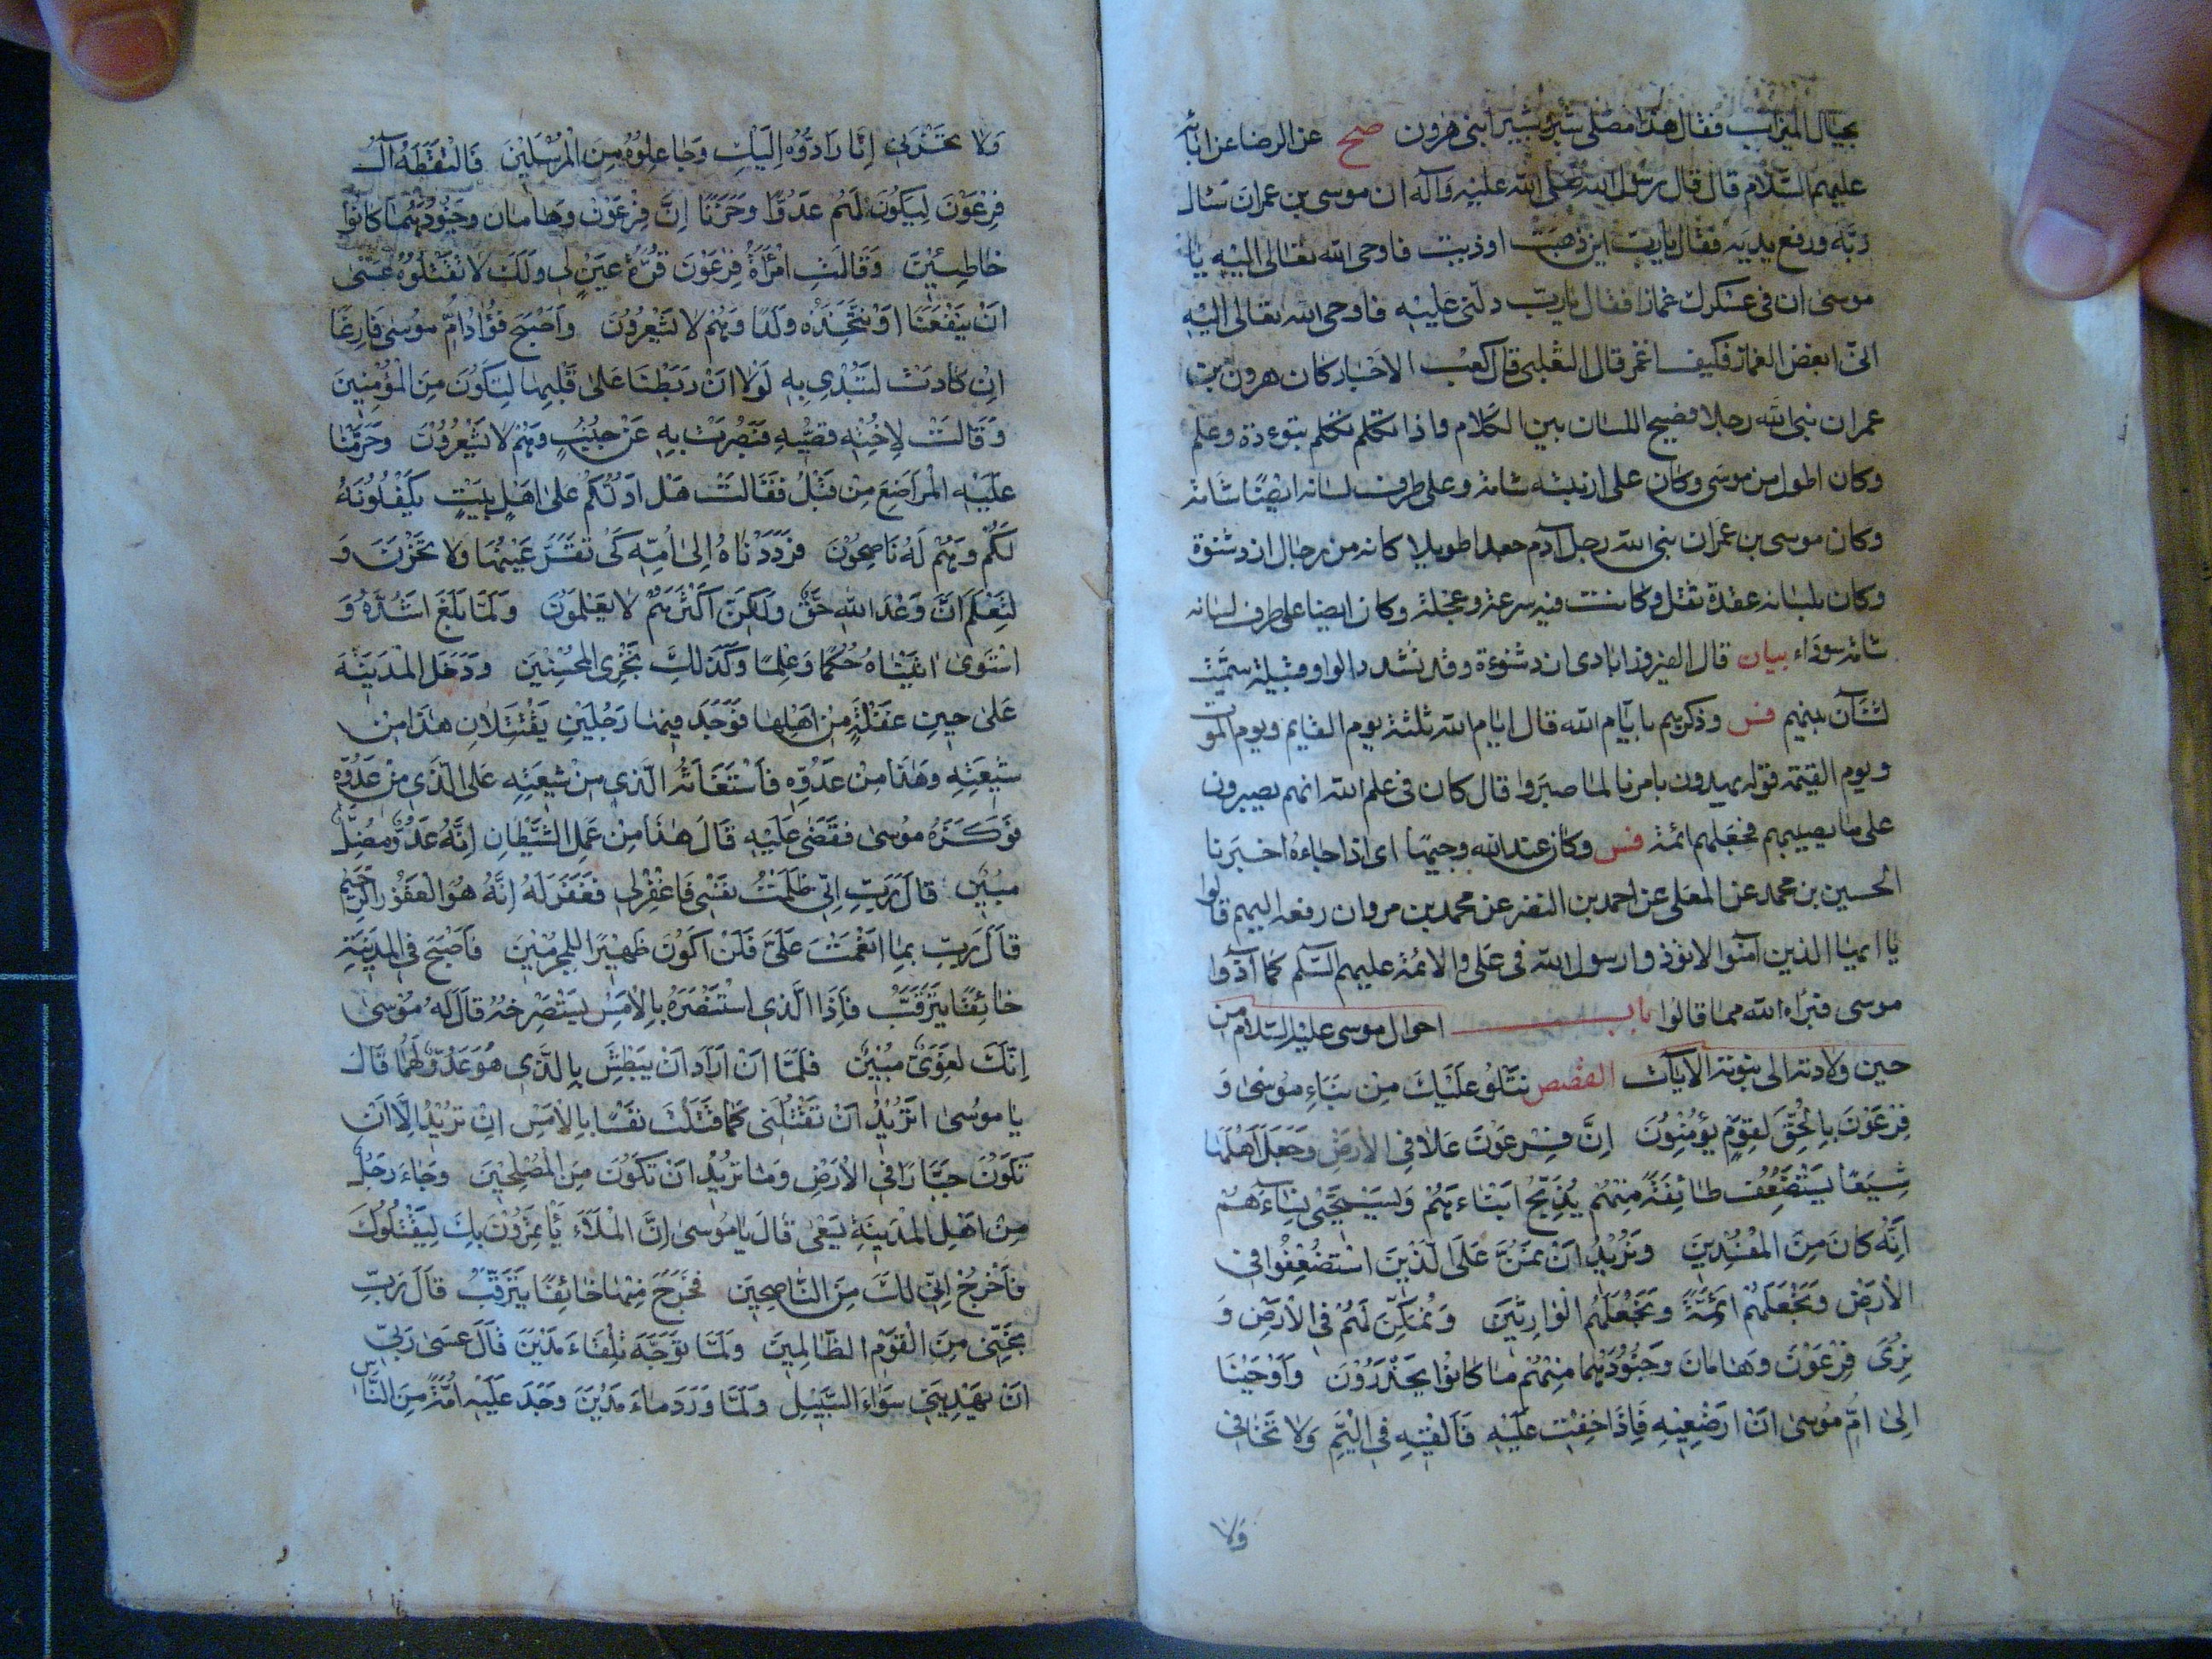 بحيال الميزاب فقال هذا مصلى شبر وشبير ابنى هرون صح عن الرضا عن ابائه
عليهم السّلام قال قال رسول الله صلى الله عليه وآله ان موسى بن عمران سئال
ربّه ورفع يديه فقال يا ربّ اين ذهبت اوذيت فاوحى الله تعالى اليه يا
موسى ان فى عسكرك غمازا فقال يا ربّ دلنى عليه فاوحى الله تعالى اليه
انّى ابغض الغماز فكيف اغمز قال الثعلبى قال كعب الاخبار كان هرون بن
عمران نبى الله رجلا فصيح اللسان بين الكلام واذا تكلم تكلم بتوءدة وعلم
وكان اطول من موسى وكان على ارنبته شامة وعلى طرف لسانه ايضًا شامة
وكان موسى بن عمران نبى الله رجل آدم جعدا طويلا كانه من رجال ازد شنوة
وكان بلسانه عقدة ثقل وكانت فيه سرعة وعجلة وكان ايضا على طرف لسانه
شامة سوداء بيان قال الفيروزابادى ازد شنوءة وقد تشدد الواو قبيلة سمّيت
لشنآن بينهم فس وذكرهم بايّام الله قال ايّام الله ثلثة يوم القايم ويوم الموت
ويوم القيمة قوله يهدون بامرنا لما صبروا قال كان فى علم الله انهم يصبرون
على ما يصيبهم فجعلهم ائمة فس وكان عند الله وجيهًا اى اذا جاءه اخبرنا
الحسين بن محمد عن المعلى عن احمد بن النضر عن محمد بن مروان رفعه اليهم قالوا
يا ايها الذين آمنوا لا تؤذوا رسول الله فى على والائمة عليهم السّلم كما آذوا
موسى فبرّاه الله مما قالوا باب احوال موسى عليه السّلام من
حين ولادته الى نبوته الآيات القصص نتلو عليك من نباء موسى و
فِرْعَوْنَ بِالْحَقِّ لِقَوْمٍ يُؤْمِنُونَ اِنَّ فِرْعَوْنَ عَلَا فِى الْاَرْضِ وَجَعَلَ اَهْلَهَا
شِيَعًا يَسْتَضْعِفُ طَائِفَةً مِنْهُمْ يُذَبِّحُ اَبْنَاءَهُمْ وَيَسْتَحْيِى نِسَاءَهُمْ
اِنَّهُ كَانَ مِنَ الْمُفْسِدِينَ وَنُرِيدُ اَنْ نَمُنَّ عَلَى الَّذِينَ اسْتُضْعِفُوا فِى
الْاَرْضِ وَنَجْعَلَهُمْ اَئِمَّةً وَنَجْعَلَهُمُ الْوَارِثِينَ وَنُمَكِّنَ لَهُمْ فِى الْاَرْضِ وَ
نُرِىَ فِرْعَوْنَ وَهَامَانَ وَجُنُودَهُمَا مِنْهُمْ مَا كَانُوا يَحْذَرُونَ وَاَوْحَيْنَا
اِلىٰ اُمِّ مُوسىٰ اَنْ اَرْضِعِيهِ فَاِذَا خِفْتِ عَلَيْهِ فَاَلْقِيهِ فِى الْيَمِّ وَلَا تَخَافِى
وَلا
وَلَا تَحْزَنِى اِنَّا رَادُّوهُ اِلَيْكِ وَجَاعِلُوهُ مِنَ الْمُرْسَلِينَ فَالْتَقَطَهُ آلُ
فِرْعَوْنَ لِيَكُونَ لَهُمْ عَدُوًّا وَحَزَنًا اِنَّ فِرْعَوْنَ وَهَامَانَ وَجُنُودَهُمَا كَانُوا
خَاطِئِينَ وَقَالَتِ امْرَأَةُ فِرْعَوْنَ قُرَّةُ عَيْنٍ لِى وَلَكَ لَا تَقْتُلُوهُ عَسىٰ
اَنْ يَنْفَعَنَا اَوْ نَتَّخِذَهُ وَلَدًا وَهُمْ لَا يَشْعُرُونَ وَاَصْبَحَ فُؤَادُ اُمِّ مُوسىٰ فَارِغًا
اِنْ كَادَتْ لَتُبْدِى بِهِ لَوْلَا اَنْ رَبَطْنَا عَلىٰ قَلْبِهَا لِتَكُونَ مِنَ الْمُؤْمِنِينَ
وَقَالَتْ لِاُخْتِهِ قُصِّيهِ فَبَصُرَتْ بِهِ عَنْ جُنُبٍ وَهُمْ لَا يَشْعُرُونَ وَحَرَّمْنَا
عَلَيْهِ الْمَرَاضِعَ مِنْ قَبْلُ فَقَالَتْ هَلْ اَدُلُّكُمْ عَلىٰ اَهْلِ بَيْتٍ يَكْفُلُونَهُ
لَكُمْ وَهُمْ لَهُ نَاصِحُونَ فَرَدَدْنَاهُ اِلىٰ اُمِّهِ كَىْ تَقَرَّ عَيْنُهَا وَلَا تَحْزَنَ وَ
لِتَعْلَمَ اَنَّ وَعْدَ اللهِ حَقٌّ وَلٰكِنَّ اَكْثَرَهُمْ لَا يَعْلَمُونَ وَلَمَّا بَلَغَ اَشُدَّهُ وَ
اسْتَوىٰ اٰتَيْنَاهُ حُكْمًا وَعِلْمًا وَكَذٰلِكَ نَجْزِى الْمُحْسِنِينَ وَدَخَلَ الْمَدِينَةَ
عَلىٰ حِينِ غَفْلَةٍ مِنْ اَهْلِهَا فَوَجَدَ فِيهَا رَجُلَيْنِ يَقْتَتِلَانِ هٰذَا مِنْ
شِيعَتِهِ وَهٰذَا مِنْ عَدُوِّهِ فَاسْتَغَاثَهُ الَّذِى مِنْ شِيعَتِهِ عَلَى الَّذِى مِنْ عَدُوِّهِ
فَوَكَزَهُ مُوسىٰ فَقَضىٰ عَلَيْهِ قَالَ هٰذَا مِنْ عَمَلِ الشَّيْطَانِ اِنَّهُ عَدُوٌّ مُضِلٌّ
مُبِينٌ قَالَ رَبِّ اِنِّى ظَلَمْتُ نَفْسِى فَاغْفِرْ لِى فَغَفَرَ لَهُ اِنَّهُ هُوَ الْغَفُورُ الرَّحِيمُ
قَالَ رَبِّ بِمَا اَنْعَمْتَ عَلَىَّ فَلَنْ اَكُونَ ظَهِيرًا لِلْمُجْرِمِينَ فَاَصْبَحَ فِى الْمَدِينَةِ
خَائِفًا يَتَرَقَّبُ فَاِذَا الَّذِى اسْتَنْصَرَهُ بِالْاَمْسِ يَسْتَصْرِخُهُ قَالَ لَهُ مُوسىٰ
اِنَّكَ لَغَوِىٌّ مُبِينٌ فَلَمَّا اَنْ اَرَادَ اَنْ يَبْطِشَ بِالَّذِى هُوَ عَدُوٌّ لَهُمَا قَالَ
يَا مُوسىٰ اَتُرِيدُ اَنْ تَقْتُلَنِى كَمَا قَتَلْتَ نَفْسًا بِالْاَمْسِ اِنْ تُرِيدُ اِلَّا اَنْ
تَكُونَ جَبَّارًا فِى الْاَرْضِ وَمَا تُرِيدُ اَنْ تَكُونَ مِنَ الْمُصْلِحِينَ وَجَاءَ رَجُلٌ
مِنْ اَهْلِ الْمَدِينَةِ يَسْعىٰ قَالَ يَا مُوسىٰ اِنَّ الْمَلَاَءَ يَأْتَمِرُونَ بِكَ لِيَقْتُلُوكَ
فَاخْرُجْ اِنِّى لَكَ مِنَ النَّاصِحِينَ فَخَرَجَ مِنْهَا خَائِفًا يَتَرَقَّبُ قَالَ رَبِّ
نَجِّنِى مِنَ الْقَوْمِ الظَّالِمِينَ وَلَمَّا تَوَجَّهَ تِلْقَاءَ مَدْيَنَ قَالَ عَسىٰ رَبِّى
اَنْ يَهْدِيَنِى سَوَاءَ السَّبِيلِ وَلَمَّا وَرَدَ مَاءَ مَدْيَنَ وَجَدَ عَلَيْهِ اُمَّةً مِنَ النَّاسِ